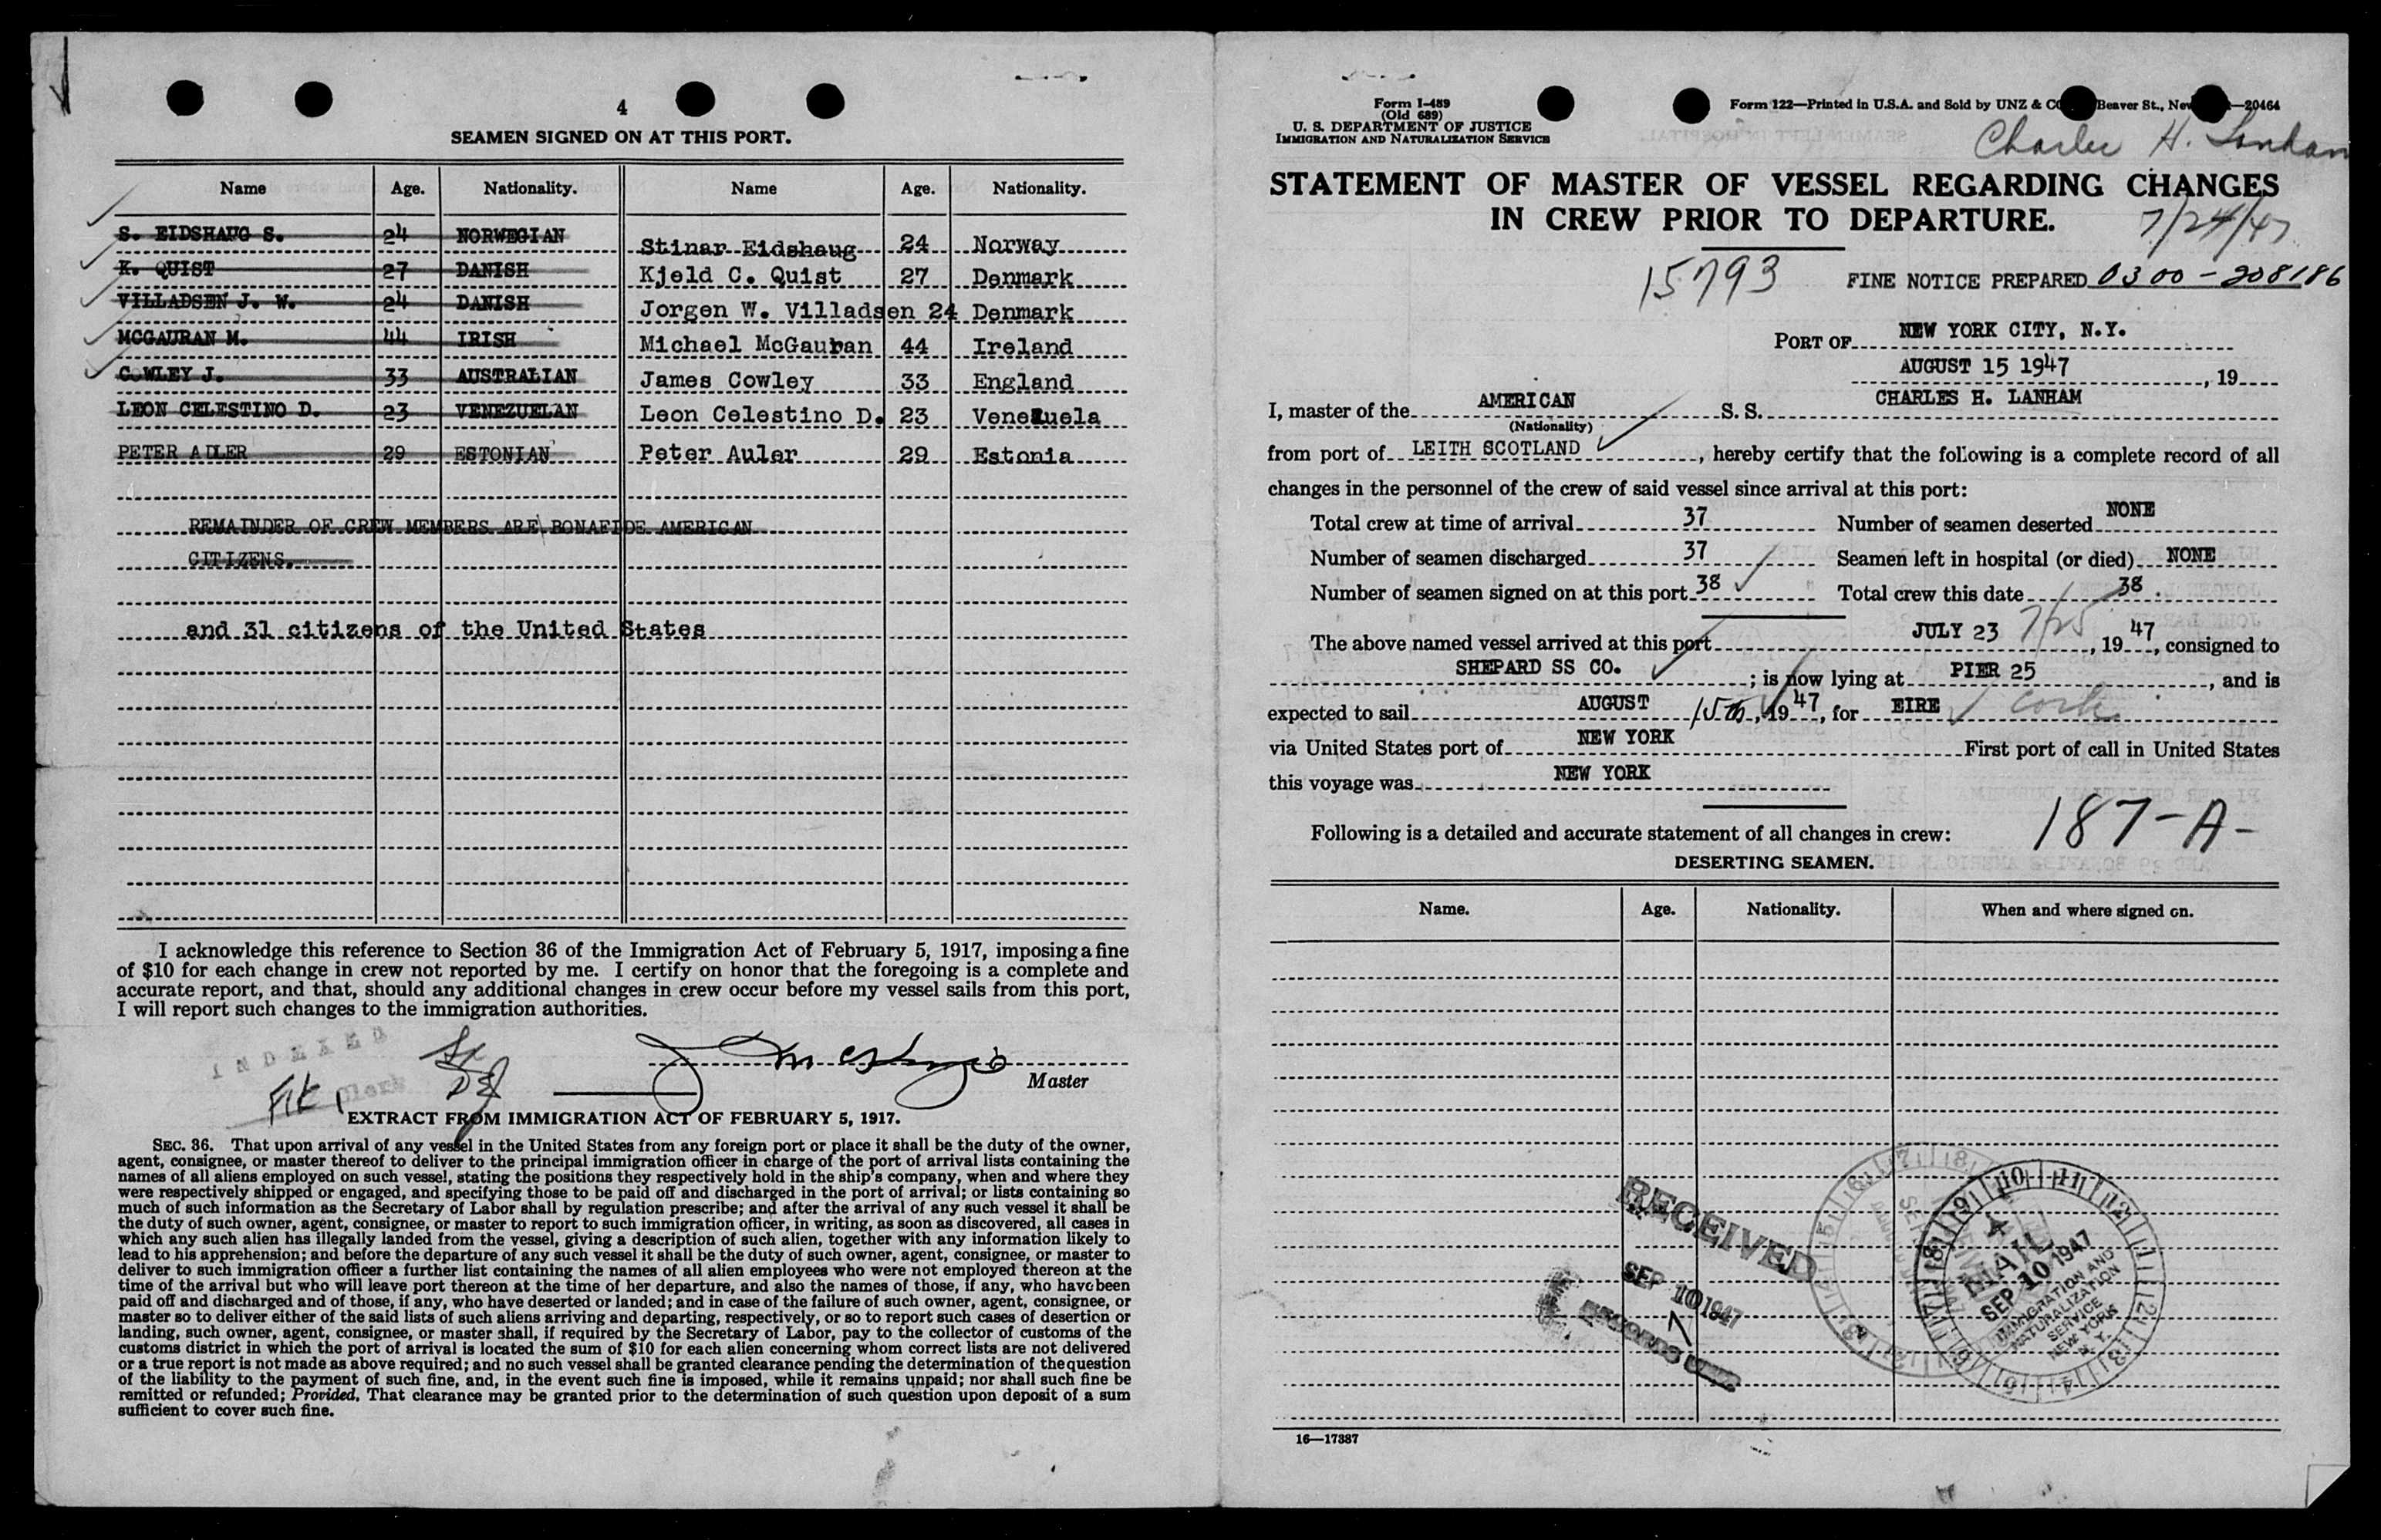 4
SEAMEN SIGNED ON AT THIS PORT.
Name Age. Nationality. Name Age. Nationality.
S. EIDSHAUG S. 24 NORWEGIAN Stinar Eidshaug 24 Norway
K. QUIST 27 DANISH Kjeld C. Quist 27 Denmark
VILLADSEN J. W. 24 DANISH Jorgen W. Villadsen 24 Denmark
MCGAURAN M. 44 IRISH Michael McGauran 44 Ireland
COWLEY J. 33 AUSTRALIAN James Cowley 33 England
LEON CELESTINO D. 23 VENEZUELAN Leon Celestino D. 23 Venezuela
PETER ADLER 29 ESTONIAN Peter Auler 29 Estonia
REMAINDER OF CREW MEMBERS ARE BONAFIDE AMERICAN
CITIZENS.
and 31 citizens of the United States
I acknowledge this reference to Section 36 of the Immigration Act of February 5, 1917, imposing a fine
of $10 for each change in crew not reported by me. I certify on honor that the foregoing is a complete and
accurate report, and that, should any additional changes in crew occur before my vessel sails from this port,
I will report such changes to the immigration authorities.
INDEXED
Clerk
Master
EXTRACT FROM IMMIGRATION ACT OF FEBRUARY 5, 1917.
SEC. 36. That upon arrival of any vessel in the United States from any foreign port or place it shall be the duty of the owner,
agent, consignee, or master thereof to deliver to the principal immigration officer in charge of the port of arrival lists containing the
names of all aliens employed on such vessel, stating the positions they respectively hold in the ship's company, when and where they
were respectively shipped or engaged, and specifying those to be paid off and discharged in the port of arrival; or lists containing so
much of such information as the Secretary of Labor shall by regulation prescribe; and after the arrival of any such vessel it shall be
the duty of such owner, agent, consignee, or master to report to such immigration officer, in writing, as soon as discovered, all cases in
which any such alien has illegally landed from the vessel, giving a description of such alien, together with any information likely to
lead to his apprehension; and before the departure of any such vessel it shall be the duty of such owner, agent, consignee, or master to
deliver to such immigration officer a further list containing the names of all alien employees who were not employed thereon at the
time of the arrival but who will leave port thereon at the time of her departure, and also the names of those, if any, who have been
paid off and discharged and of those, if any, who have deserted or landed; and in case of the failure of such owner, agent, consignee, or
master so to deliver either of the said lists of such aliens arriving and departing, respectively, or so to report such cases of desertion or
landing, such owner, agent, consignee, or master shall, if required by the Secretary of Labor, pay to the collector of customs of the
customs district in which the port of arrival is located the sum of $10 for each alien concerning whom correct lists are not delivered
or a true report is not made as above required; and no such vessel shall be granted clearance pending the determination of the question
of the liability to the payment of such fine, and, in the event such fine is imposed, while it remains unpaid; nor shall such fine be
remitted or refunded; Provided, That clearance may be granted prior to the determination of such question upon deposit of a sum
sufficient to cover such fine.
Form I-489
(Old 689)
U. S. DEPARTMENT OF JUSTICE
IMMIGRATION AND NATURALIZATION SERVICE
Form 122—Printed in U.S.A. and Sold by UNZ & CO Beaver St., New —20464
Charles H. Lanham
STATEMENT OF MASTER OF VESSEL REGARDING CHANGES
IN CREW PRIOR TO DEPARTURE.
7/24/47
15793 FINE NOTICE PREPARED 0300-208186
PORT OF NEW YORK CITY, N.Y.
AUGUST 15 1947, 19
I, master of the AMERICAN S. S. CHARLES H. LANHAM
(Nationality)
from port of LEITH SCOTLAND, hereby certify that the following is a complete record of all
changes in the personnel of the crew of said vessel since arrival at this port:
Total crew at time of arrival 37 Number of seamen deserted NONE
Number of seamen discharged 37 Seamen left in hospital (or died) NONE
Number of seamen signed on at this port 38 Total crew this date 38
The above named vessel arrived at this port JULY 23 7/25, 1947, consigned to
SHEPARD SS CO.; is now lying at PIER 25, and is
expected to sail AUGUST 15th, 1947, for EIRE Cork
via United States port of NEW YORK First port of call in United States
this voyage was NEW YORK
Following is a detailed and accurate statement of all changes in crew: 187-A-
DESERTING SEAMEN.
Name. Age. Nationality. When and where signed on.
RECEIVED
SEP 10 1947
RECORDS
MAIL
SEP 10 1947
IMMIGRATION AND
NATURALIZATION
SERVICE
NEW YORK
N. Y.
16—17387